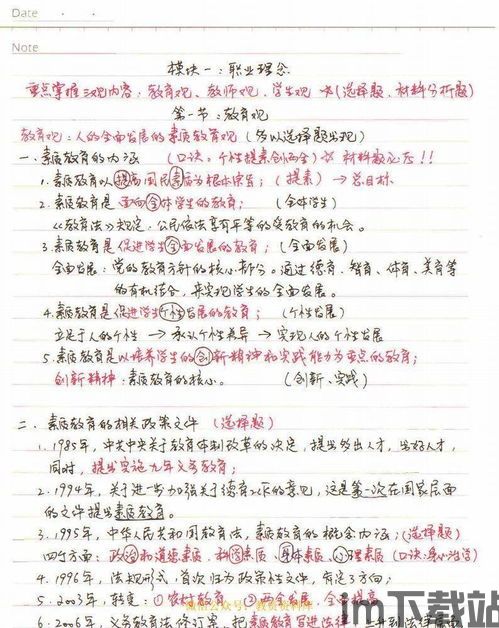 Date
Note
模块一：职业理念
重点掌握三观内容：教育观、教师观、学生观 (选择题、材料分析题)
第一节：教育观
教育观：人的全面发展的素质教育观 (多以选择题出现)
一、素质教育的内涵 (口诀：个性提素创两全)☆ 材料题必考！！
1.素质教育以提高国民素质为根本宗旨；(提素)→总目标
2.素质教育是面向全体学生的教育； (全体学生)
《教育法》规定，公民依法享有平等的受教育的机会。
3.素质教育是促进学生全面发展的教育；(全面发展)
全面发展：党的教育方针的核心部分。通过德育、智育、体育、美育等
的有机结合，来实现学生的全面发展。
4.素质教育是促进学生个性发展的教育； (个性发展)
立足于人的个性 → 承认个性差异 → 实现人的个性发展
5.素质教育是以培养学生的创新精神和实践能力为重点的教育；
创新精神：素质教育的核心。 (创新、实践)
二、素质教育的相关政策文件 (选择题)
1.1985年，中共中央关于教育体制改革的决定，提出多出人才，出好人才，
同时，提出实施九年义务教育；
2.1994年，关于进一步加强关于德育工作的意见，这是第一次在国家层面
的文件提出素质教育。
3.1995年，中华人民共和国教育法，素质教育的概念内涵；(选择题)
四个方面：政治和道德素质 科学素质、身体素质、心理素质 (口诀：身心政学)
4.1996年，法规形式，首次归为政策性文件，
5.2003年，转变：①农村教育 ②两全发展
微信公众号：教资资料库
6.2006年，义务教育法修订案，把素质教育写进法律，
im下载站